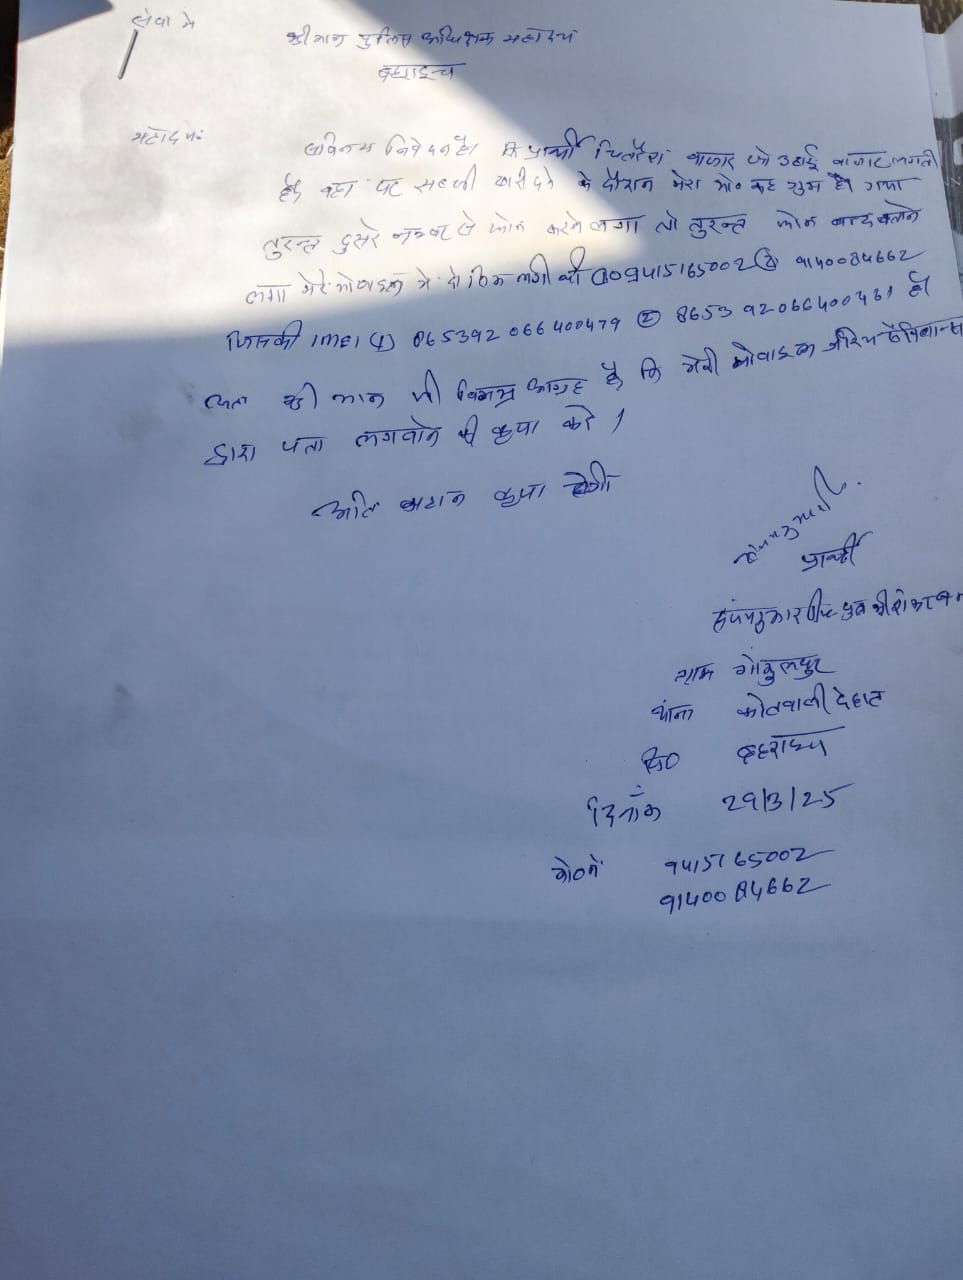 सेवा मे
श्रीमान पुलिस अधिक्षक महोदय
बहराइच
महोदय:
सविनय निवेदन है। कि प्रार्थी चित्तौरा बाजार जो उठाई बाजार लगती
है वहा पर सब्जी खरीदने के दौरान मेरा मो० कह गुम हो गया
तुरन्त दुसरे नम्बर से फोन करने लगा तो तुरन्त फोन बन्द बताने
लगा मेरे मोबाइल मे दो सिम लगी थी ① 09415165002 ② 9140084662
जिसकी IMEI ① 865392066400479 ② 865392066400461 है।
अतः श्री मान जी विनम्र आग्रह है कि मेरी मोबाइल सर्विलान्स
द्वारा पता लगवाने की कृपा करे।
अति महान कृपा होगी
प्रार्थी
पुत्र श्री
ग्राम गोकुलपुर
थाना कोतवाली देहात
जि० बहराइच
दिनांक 29/3/25
मो०नं 9415165002
9140084662